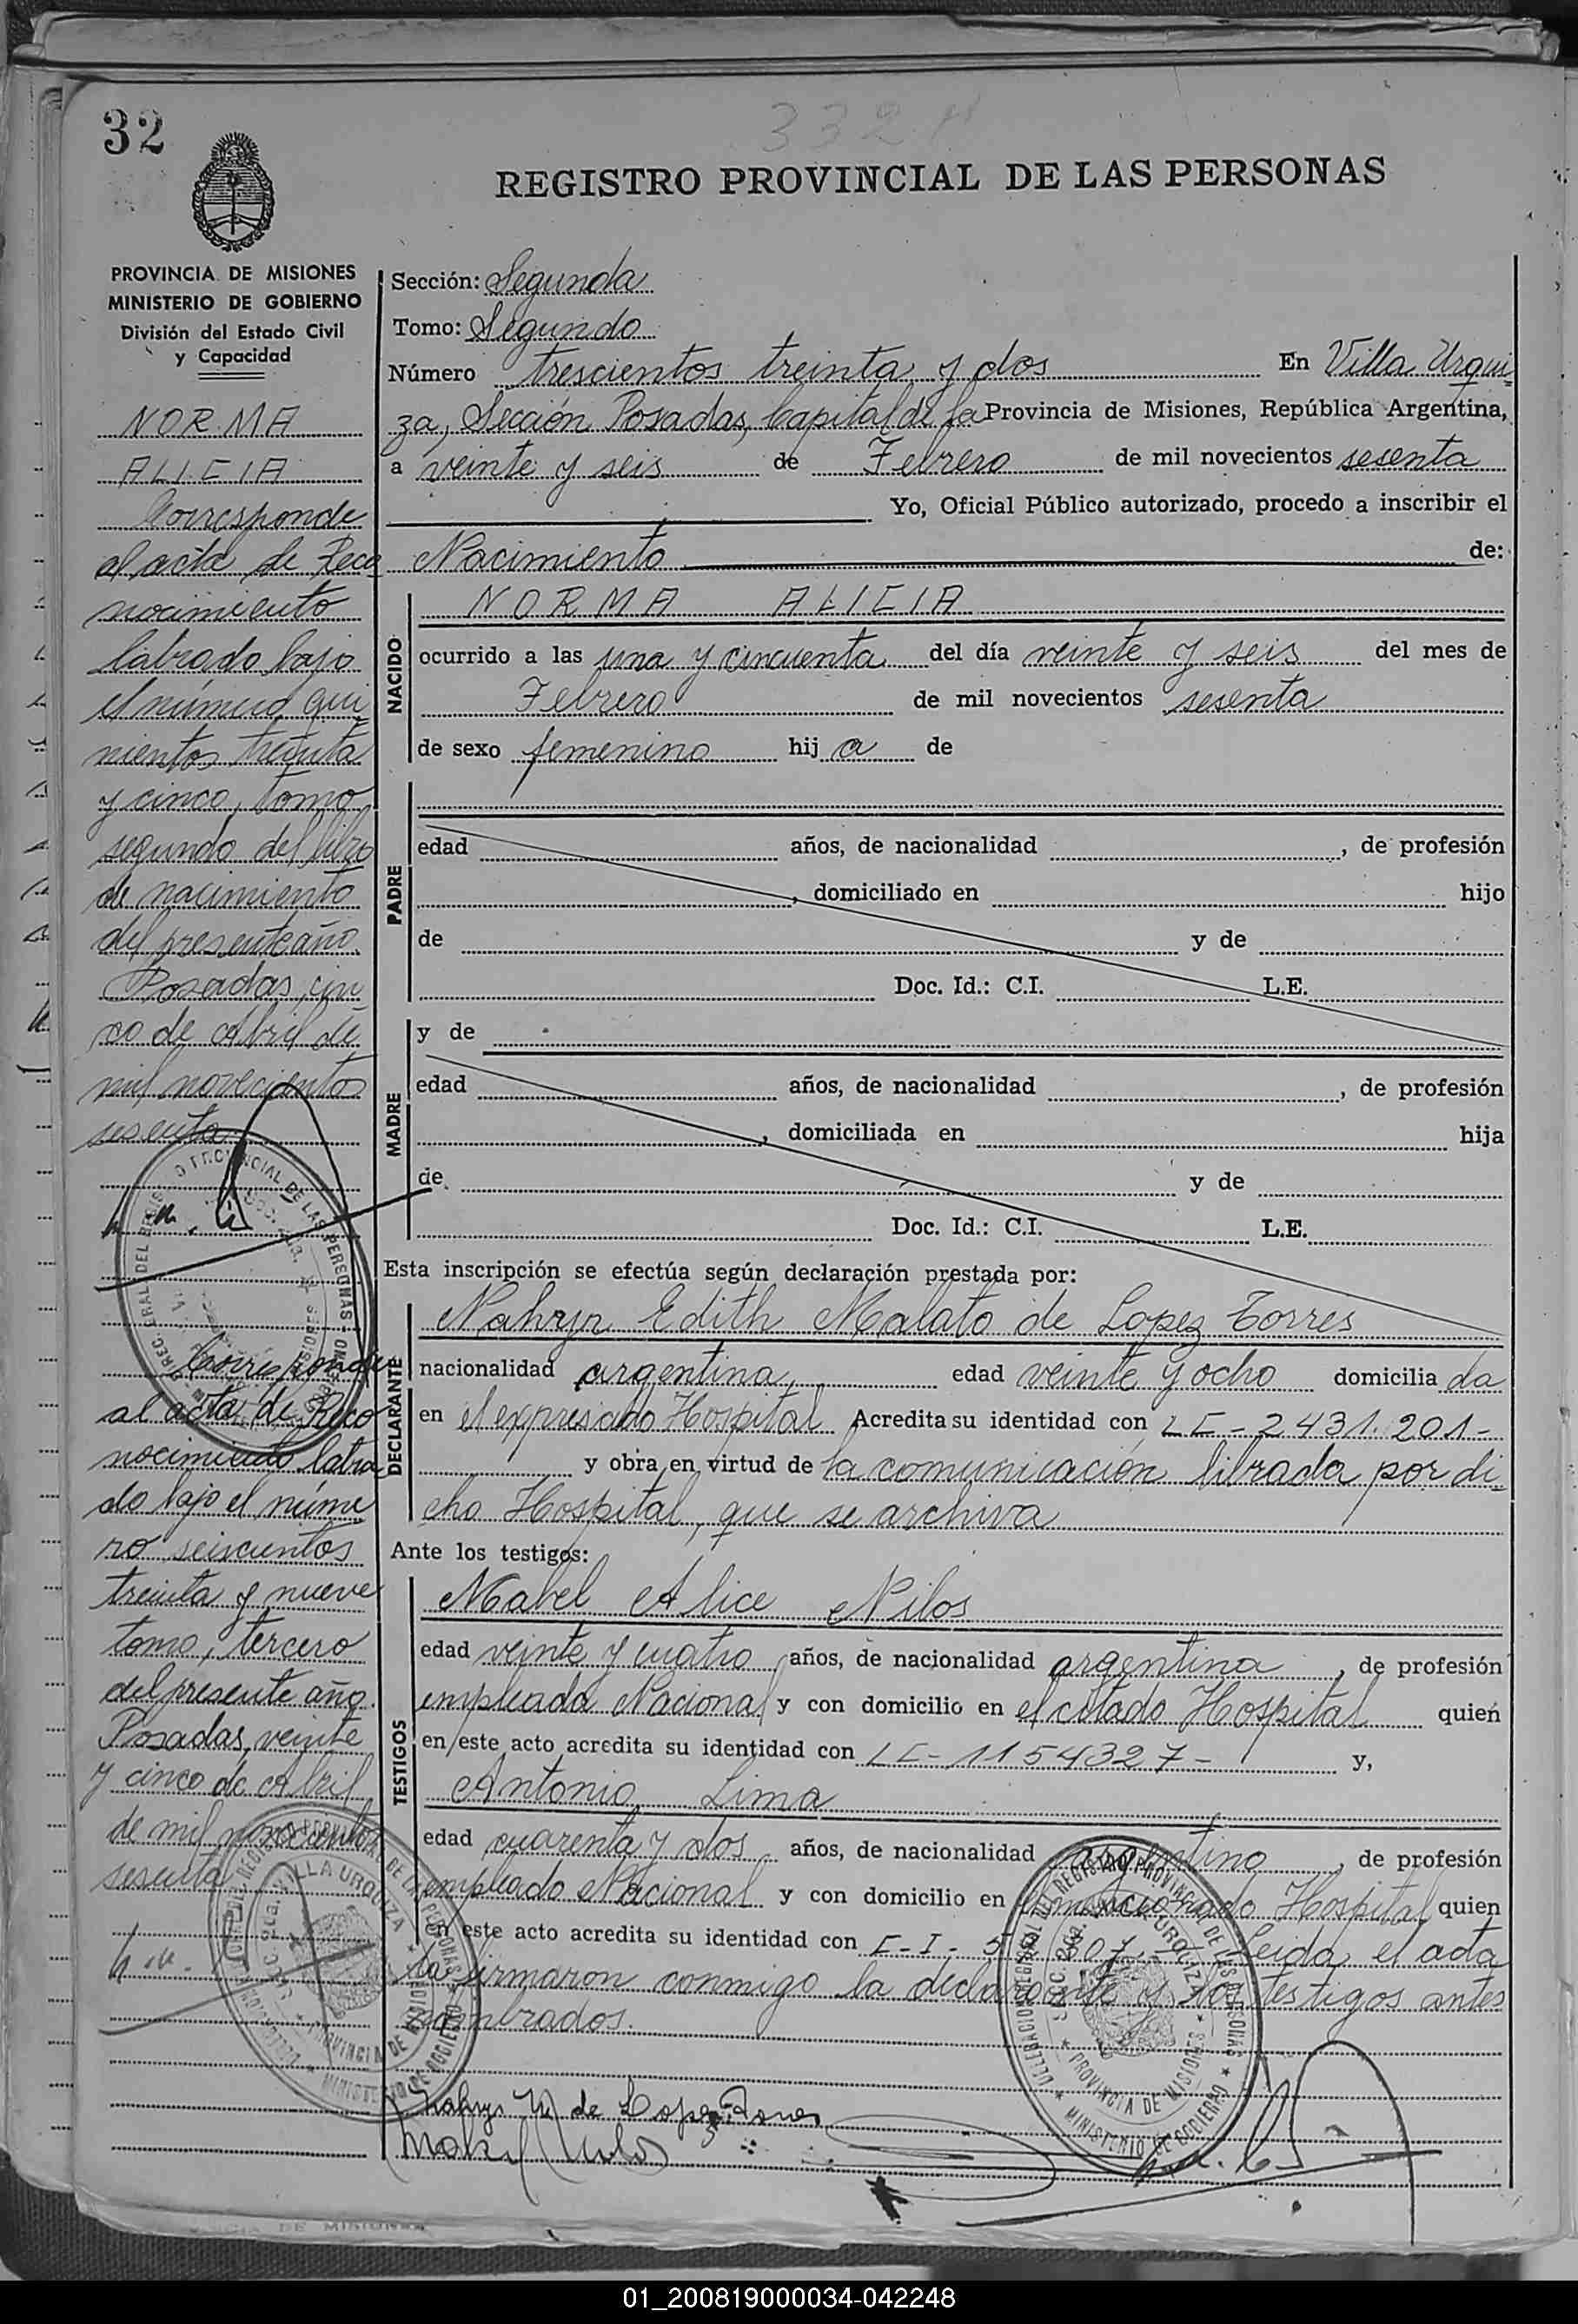 32
332
REGISTRO PROVINCIAL DE LAS PERSONAS
PROVINCIA DE MISIONES
MINISTERIO DE GOBIERNO
División del Estado Civil
y Capacidad
NORMA
ALICIA
Corresponde
al acta de Reco
nocimiento
labrado bajo
el número qui
nientos treinta
y cinco, tomo
segundo del libro
de nacimiento
del presente año.
Posadas, cin
co de Abril de
mil novecientos
sesenta
Corresponde
al acta de Reco
nocimiento labra
do bajo el núme
ro seiscientos
treinta y nueve
tomo, tercero
del presente año.
Posadas, veinte
y cinco de Abril
de mil novecientos
sesenta
Sección: Segunda
Tomo: Segundo
Número trescientos treinta y dos En Villa Urqui-
za, Sección Posadas, Capital de la Provincia de Misiones, República Argentina,
a veinte y seis de Febrero de mil novecientos sesenta
Yo, Oficial Público autorizado, procedo a inscribir el
Nacimiento de:
NACIDO
NORMA ALICIA
ocurrido a las una y cincuenta del día veinte y seis del mes de
Febrero de mil novecientos sesenta
de sexo femenino hij a de
PADRE
edad años, de nacionalidad , de profesión
, domiciliado en hijo
de y de
Doc. Id.: C.I. L.E.
MADRE
y de
edad años, de nacionalidad , de profesión
, domiciliada en hija
de y de
Doc. Id.: C.I. L.E.
Esta inscripción se efectúa según declaración prestada por:
DECLARANTE
Nahyr Edith Malato de Lopez Torres
nacionalidad argentina, edad veinte y ocho domicilia da
en el expresado Hospital Acredita su identidad con LC-2431.201-
y obra en virtud de la comunicación librada por di-
cho Hospital, que se archiva
Ante los testigos:
TESTIGOS
Mabel Alice Nilos
edad veinte y cuatro años, de nacionalidad argentina, de profesión
empleada Nacional y con domicilio en el citado Hospital quien
en este acto acredita su identidad con LC-1154327- y,
Antonio Lima
edad cuarenta y dos años, de nacionalidad argentino, de profesión
empleado Nacional y con domicilio en el mencionado Hospital quien
en este acto acredita su identidad con C-I- Leida el acta
la firmaron conmigo la declarante y los testigos antes
nombrados.
DELEGACION REGIONAL DEL REGISTRO PROVINCIAL DE LAS PERSONAS
SECC. 2da. VILLA URQUIZA
PROVINCIA DE MISIONES
MINISTERIO DE GOBIERNO
Nahyr M de Lopez Torres
Mabel Nilos
01_200819000034-042248